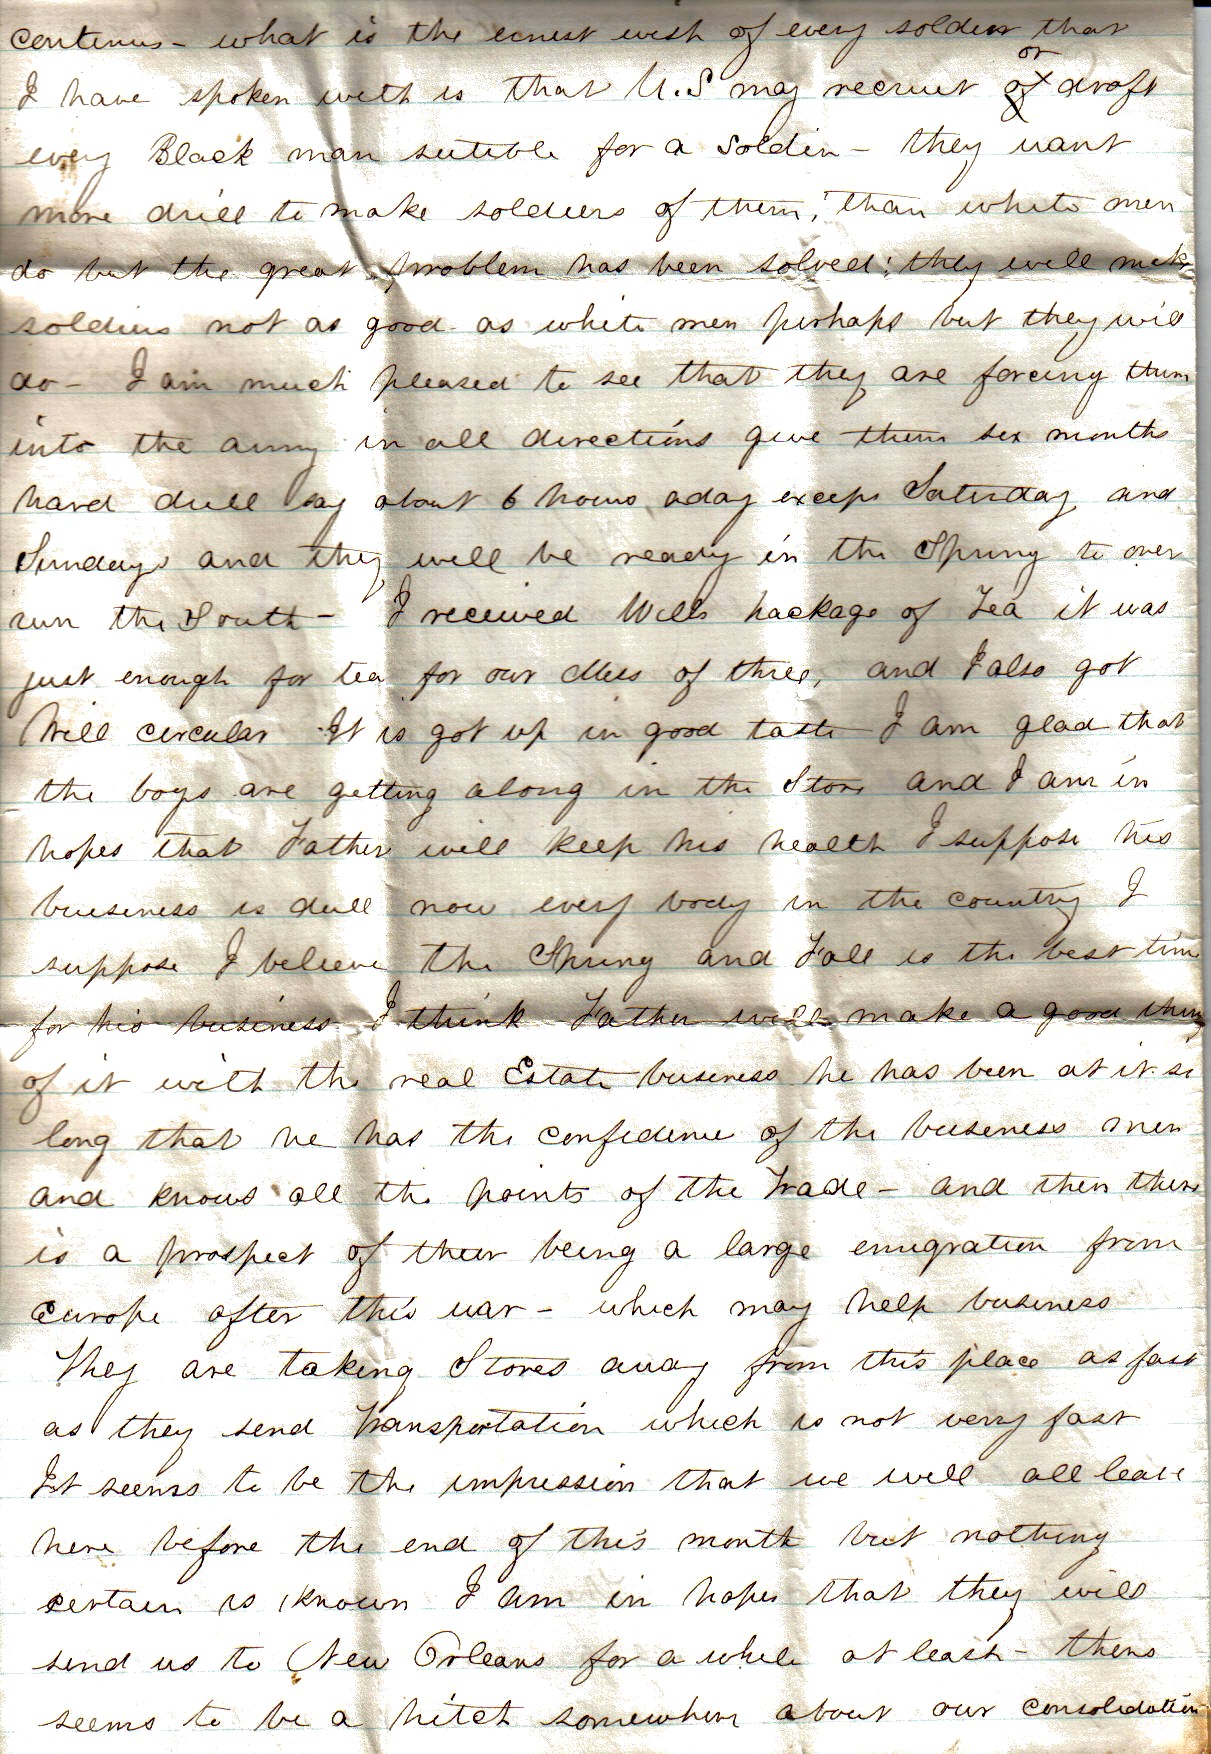 continues - what is the ernest wish of every soldier that
I have spoken with is that U.S may recruit or draft
every Black man sutible for a soldier - they want
more drill to make soldiers of them, than white men
do but the great problem has been solved; they will make
soldiers not as good as white men perhaps but they will
do - I am much pleased to see that they are forcing them
into the army in all directions give them six months
hard drill say about 6 hours aday except Saturday and
Sundays and they will be ready in the Spring to over
run the South - I received Wills package of Tea it was
just enough for tea for our Mess of three, and I also got
Will circular It is got up in good taste I am glad that
the boys are getting along in the Store and I am in
hopes that Father will keep his health I suppose his
buiseness is dull now every body in the country I
suppose I believe the Spring and Fall is the best time
for his business I think Father will make a good thing
of it with the real Estate buseness he has been at it so
long that he has the confidence of the buseness men
and knows all the points of the Trade - and then there
is a prospect of their being a large emigration from
Europe after this war - which may help buseness
They are taking Stores away from this place as fast
as they send Transportation which is not very fast
It seems to be the impression that we will all leave
here before the end of this month but nothing
certain is known I am in hopes that they will
send us to New Orleans for a while at least - there
seems to be a hitch somewhere about our consolidation